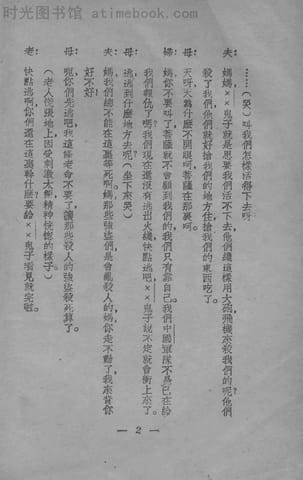 时光图书馆 atimebook.com
……(哭)叫我們怎樣活得下去呀
夫：媽媽××鬼子就是思要我們活不下去他們纔這樣用大砲飛機來殺我們的呢他們
殺了我們，他們就好搶我們的地方住搶我們的東西吃了。
母：天呀天為什麽不開眼呀菩薩在那裏呵。
婦：媽你不要叫了菩薩就不會顧到我們的，我們只有靠自己。我們中國軍隊不是已在給
我們報仇了嗎我們現在還沒有逃出火綫快點逃吧××鬼子說不定就會衝上來了。
母：逃逃到什麽地方去呢？(坐下來哭)
夫：媽媽我們總不能在這裏等死啊。媽那些强盜們是會亂殺人的，媽你走不動了我來背你
好不好？
母：呃你們先逃吧我這條老命不要了，讓那些殺人的强盜殺死算了。
(老人慌張地上因受刺激太深精神恍惚的樣子)
老：快點逃啊你們還在這裏幹什麽？要給××鬼子看見就完啦。
— 2 —